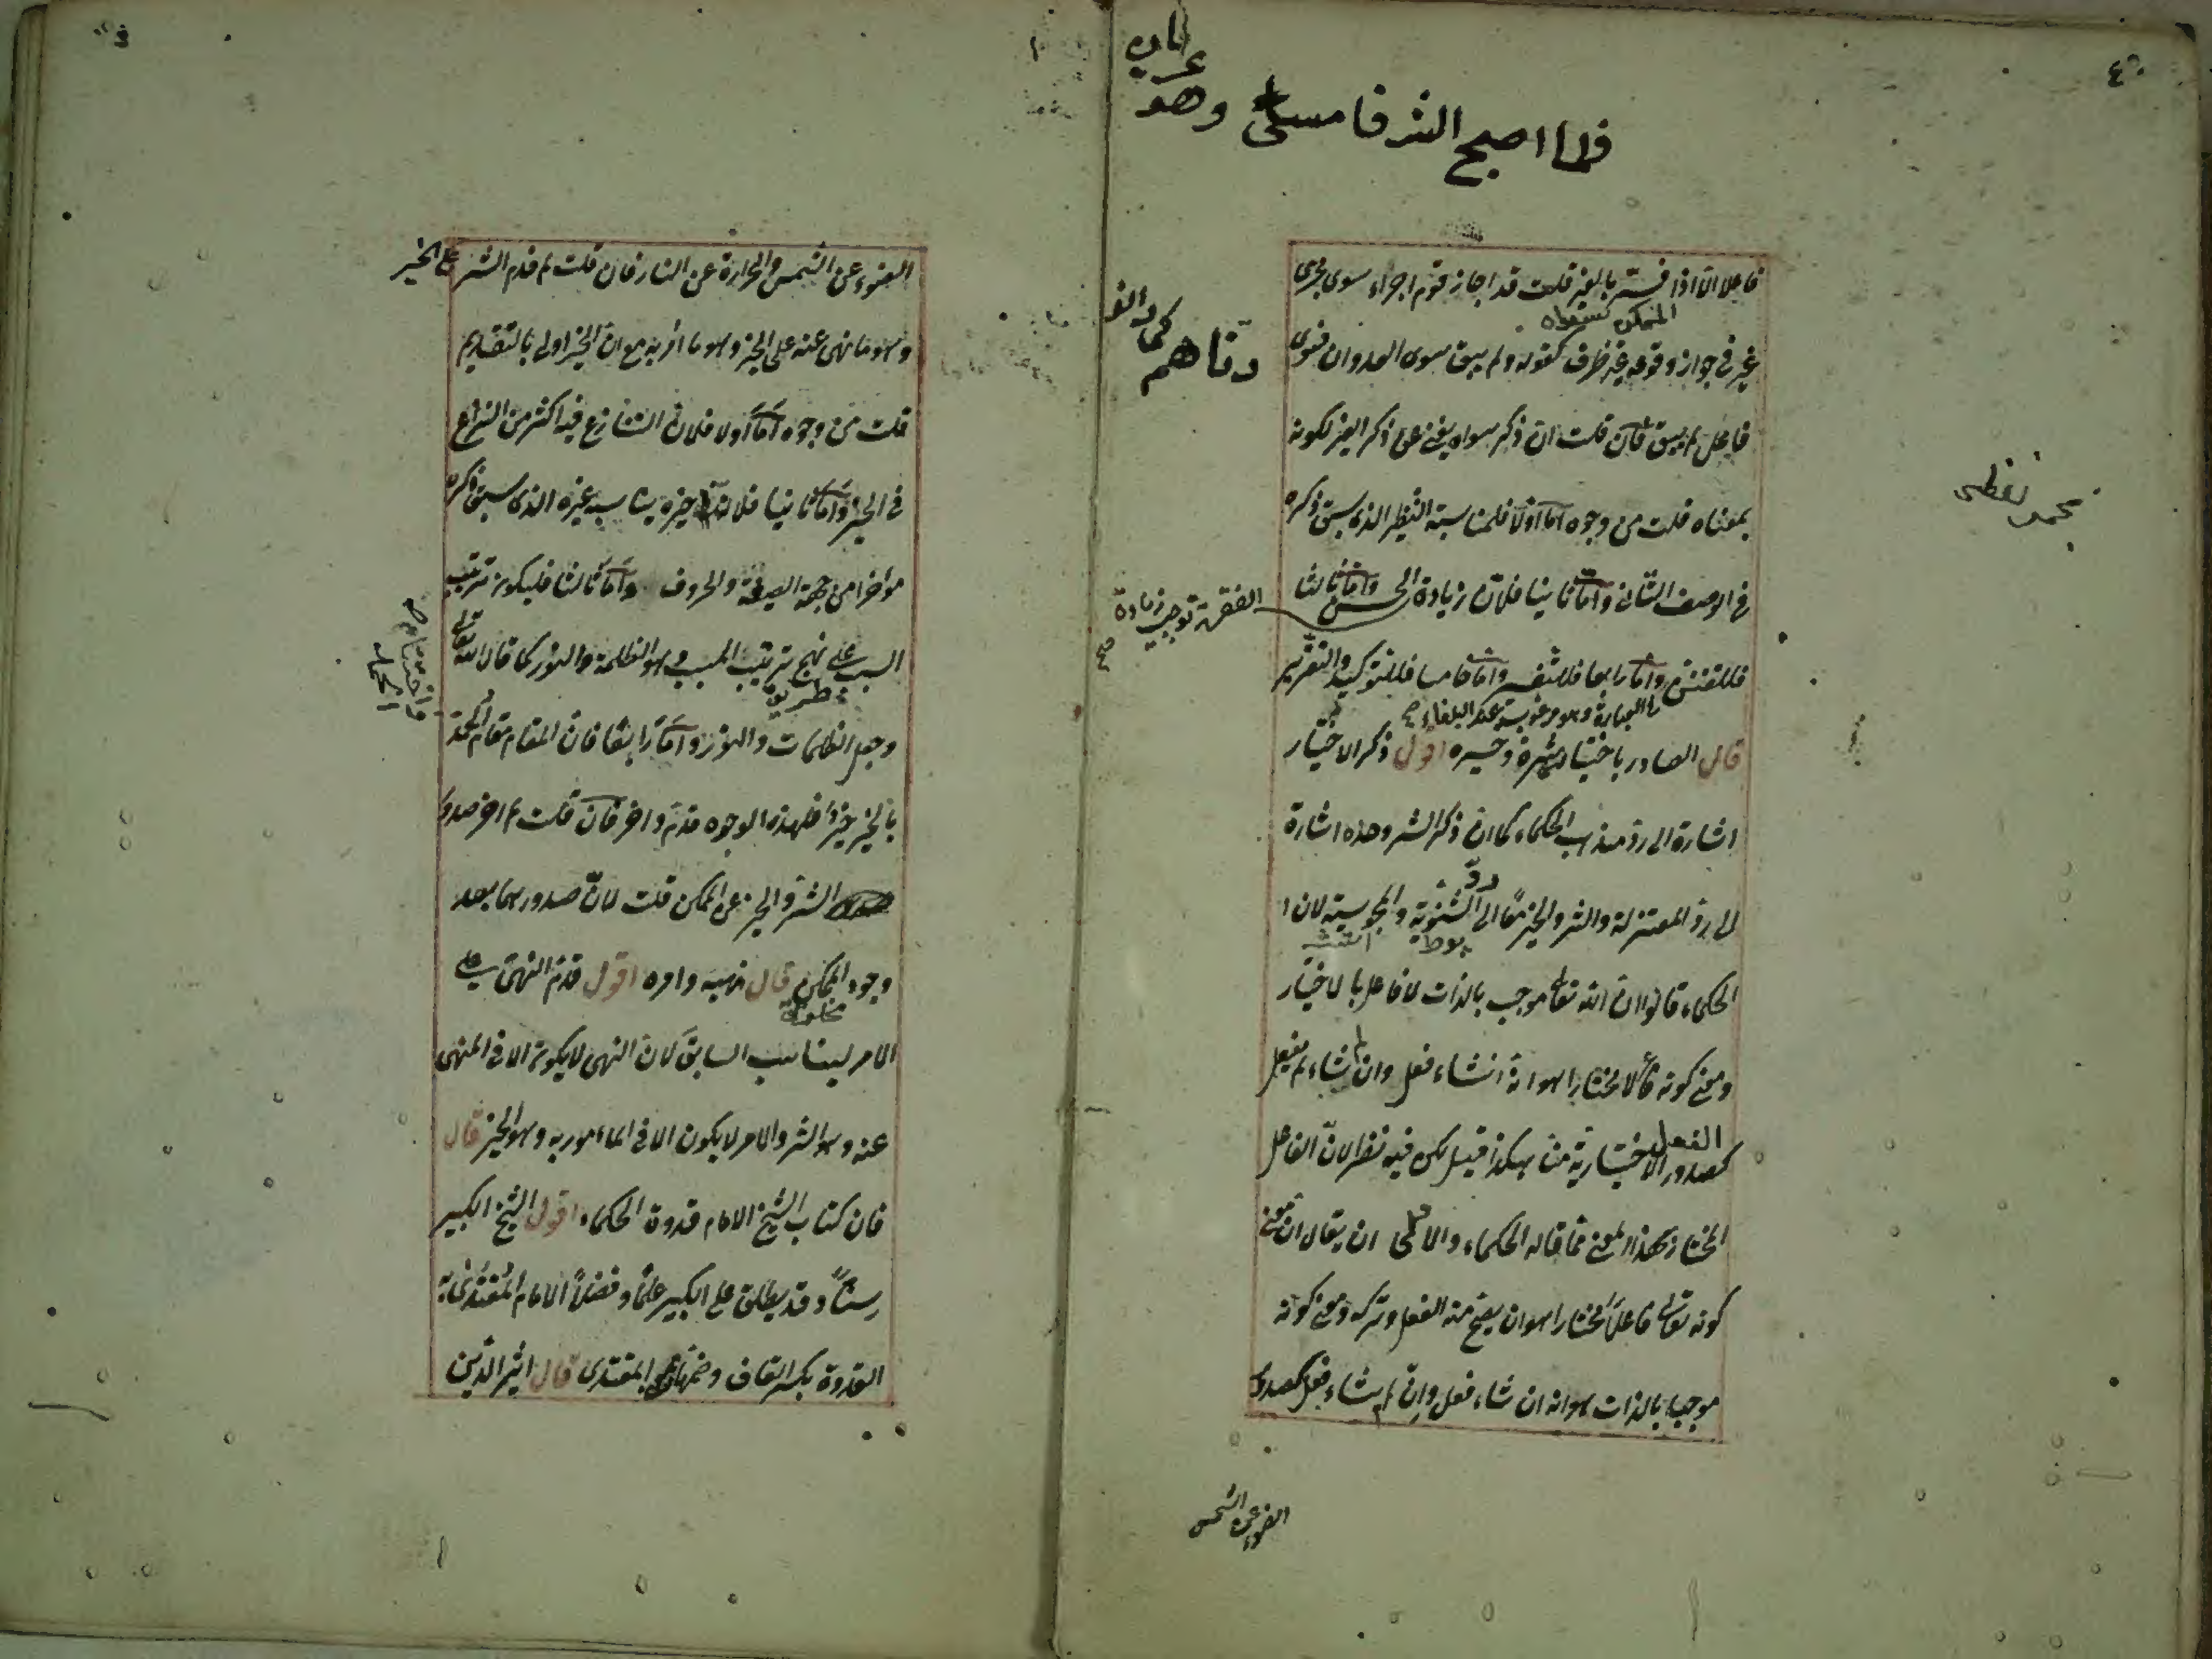 ٤
فلما اصبح الشر فامسى وهو
عريان
دناهم كما دانوا
فاعلا الا اذا فسر بالغير قلت قد اجاز قوم اجراء سوى مجرى
غير في جواز وقوعه غير ظرف كقوله ولم يبق سوى العدوان فسوى
فاعل لم يبق فان قلت ان ذكر سواه يغنى عن ذكر الغير لكونه
بمعناه قلت من وجوه اما اولا فلمناسبة النظير الذى سبق ذكره
في الوصف الثانى واما ثانيا فلان زيادة الحسن واما ثالثا
الفقرة توجب زيادة
صح
فللتفنن واما رابعا فللتفسير واما خامسا فللتوكيد والتقرير
في العبارة وهو مرغوب عند البلغاء صح
قال الصادر باختياره شره وخيره اقول ذكر الاختيار
اشارة الى رد مذهب الحكماء كما ان ذكر الشر وحده اشارة
الى رد المعتزلة والشر والخير معا الى رد الثنوية والمجوسية لان
الحكماء قالوا ان الله تعالى موجب بالذات لا فاعل بالاختيار
ومعنى كونه فاعلا مختارا هو انه ان شاء فعل وان لم يشاء لم يفعل
كصدور الفعل الاختيارية منا هكذا قيل لكن فيه نظر لان الفاعل
المختار بهذا المعنى مما قاله الحكماء والاولى ان يقال ان معنى
كونه تعالى فاعلا مختارا هو ان يصح منه الفعل وتركه ومعنى كونه
موجبا بالذات هو انه ان شاء فعل وان لم يشاء فعل كصدور
الضوء عن الشمس
الضوء عن الشمس والحرارة عن النار فان قلت لم قدم الشر على الخير
وهو ما نهى عنه على الخير وهو ما امر به مع ان الخير اولى بالتقديم
قلت من وجوه اما اولا فلان التنازع فيه اكثر من النزاع
في الخير واما ثانيا فلان خيره يناسب غيره الذى سبق ذكره
مؤخرا من جهة الصيغة والحروف واما ثالثا فليكون ترتيب
السبب على نهج ترتيب المسبب وهو الظلمة والنور كما قال الله تعالى
طريق
وجعل الظلمات والنور واما رابعا فان المقام مقام الختم
بالخير خير فلهذه الوجوه قدم واخر فان قلت لم اخر صدور
الشر والخير عن الممكن قلت لان صدورهما بعد
وجود الممكن قال نهيه وامره اقول قدم النهى على
الامر ليناسب السابق لان النهى لا يكون الا في المنهى
عنه وهو الشر والامر لا يكون الا في المأمور به وهو الخير قال
فان كتاب الشيخ الامام قدوة الحكماء اقول الشيخ الكبير
سنا وقد يطلق على الكبير علما وفضلا الامام المقتدى به
القدوة بكسر القاف وضمها المقتدى قال اثير الدين